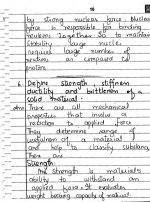 18
by strong nuclear force. Nuclear
force is responsible for binding
nucleons together. So to maintain
stability large nuclei
required large number of
neutron as compared to
proton.
6. Define strength, stiffness
ductility and brittleness of a
solid material.
Ans These are all mechanical
properties that involve a
reaction to applied force
They determine range of
usefulness of a material
and help to classify substances
These are
Strength
The strength is material's
ability to withstand an
applied force. It evaluates
weight bearing capacity of material.